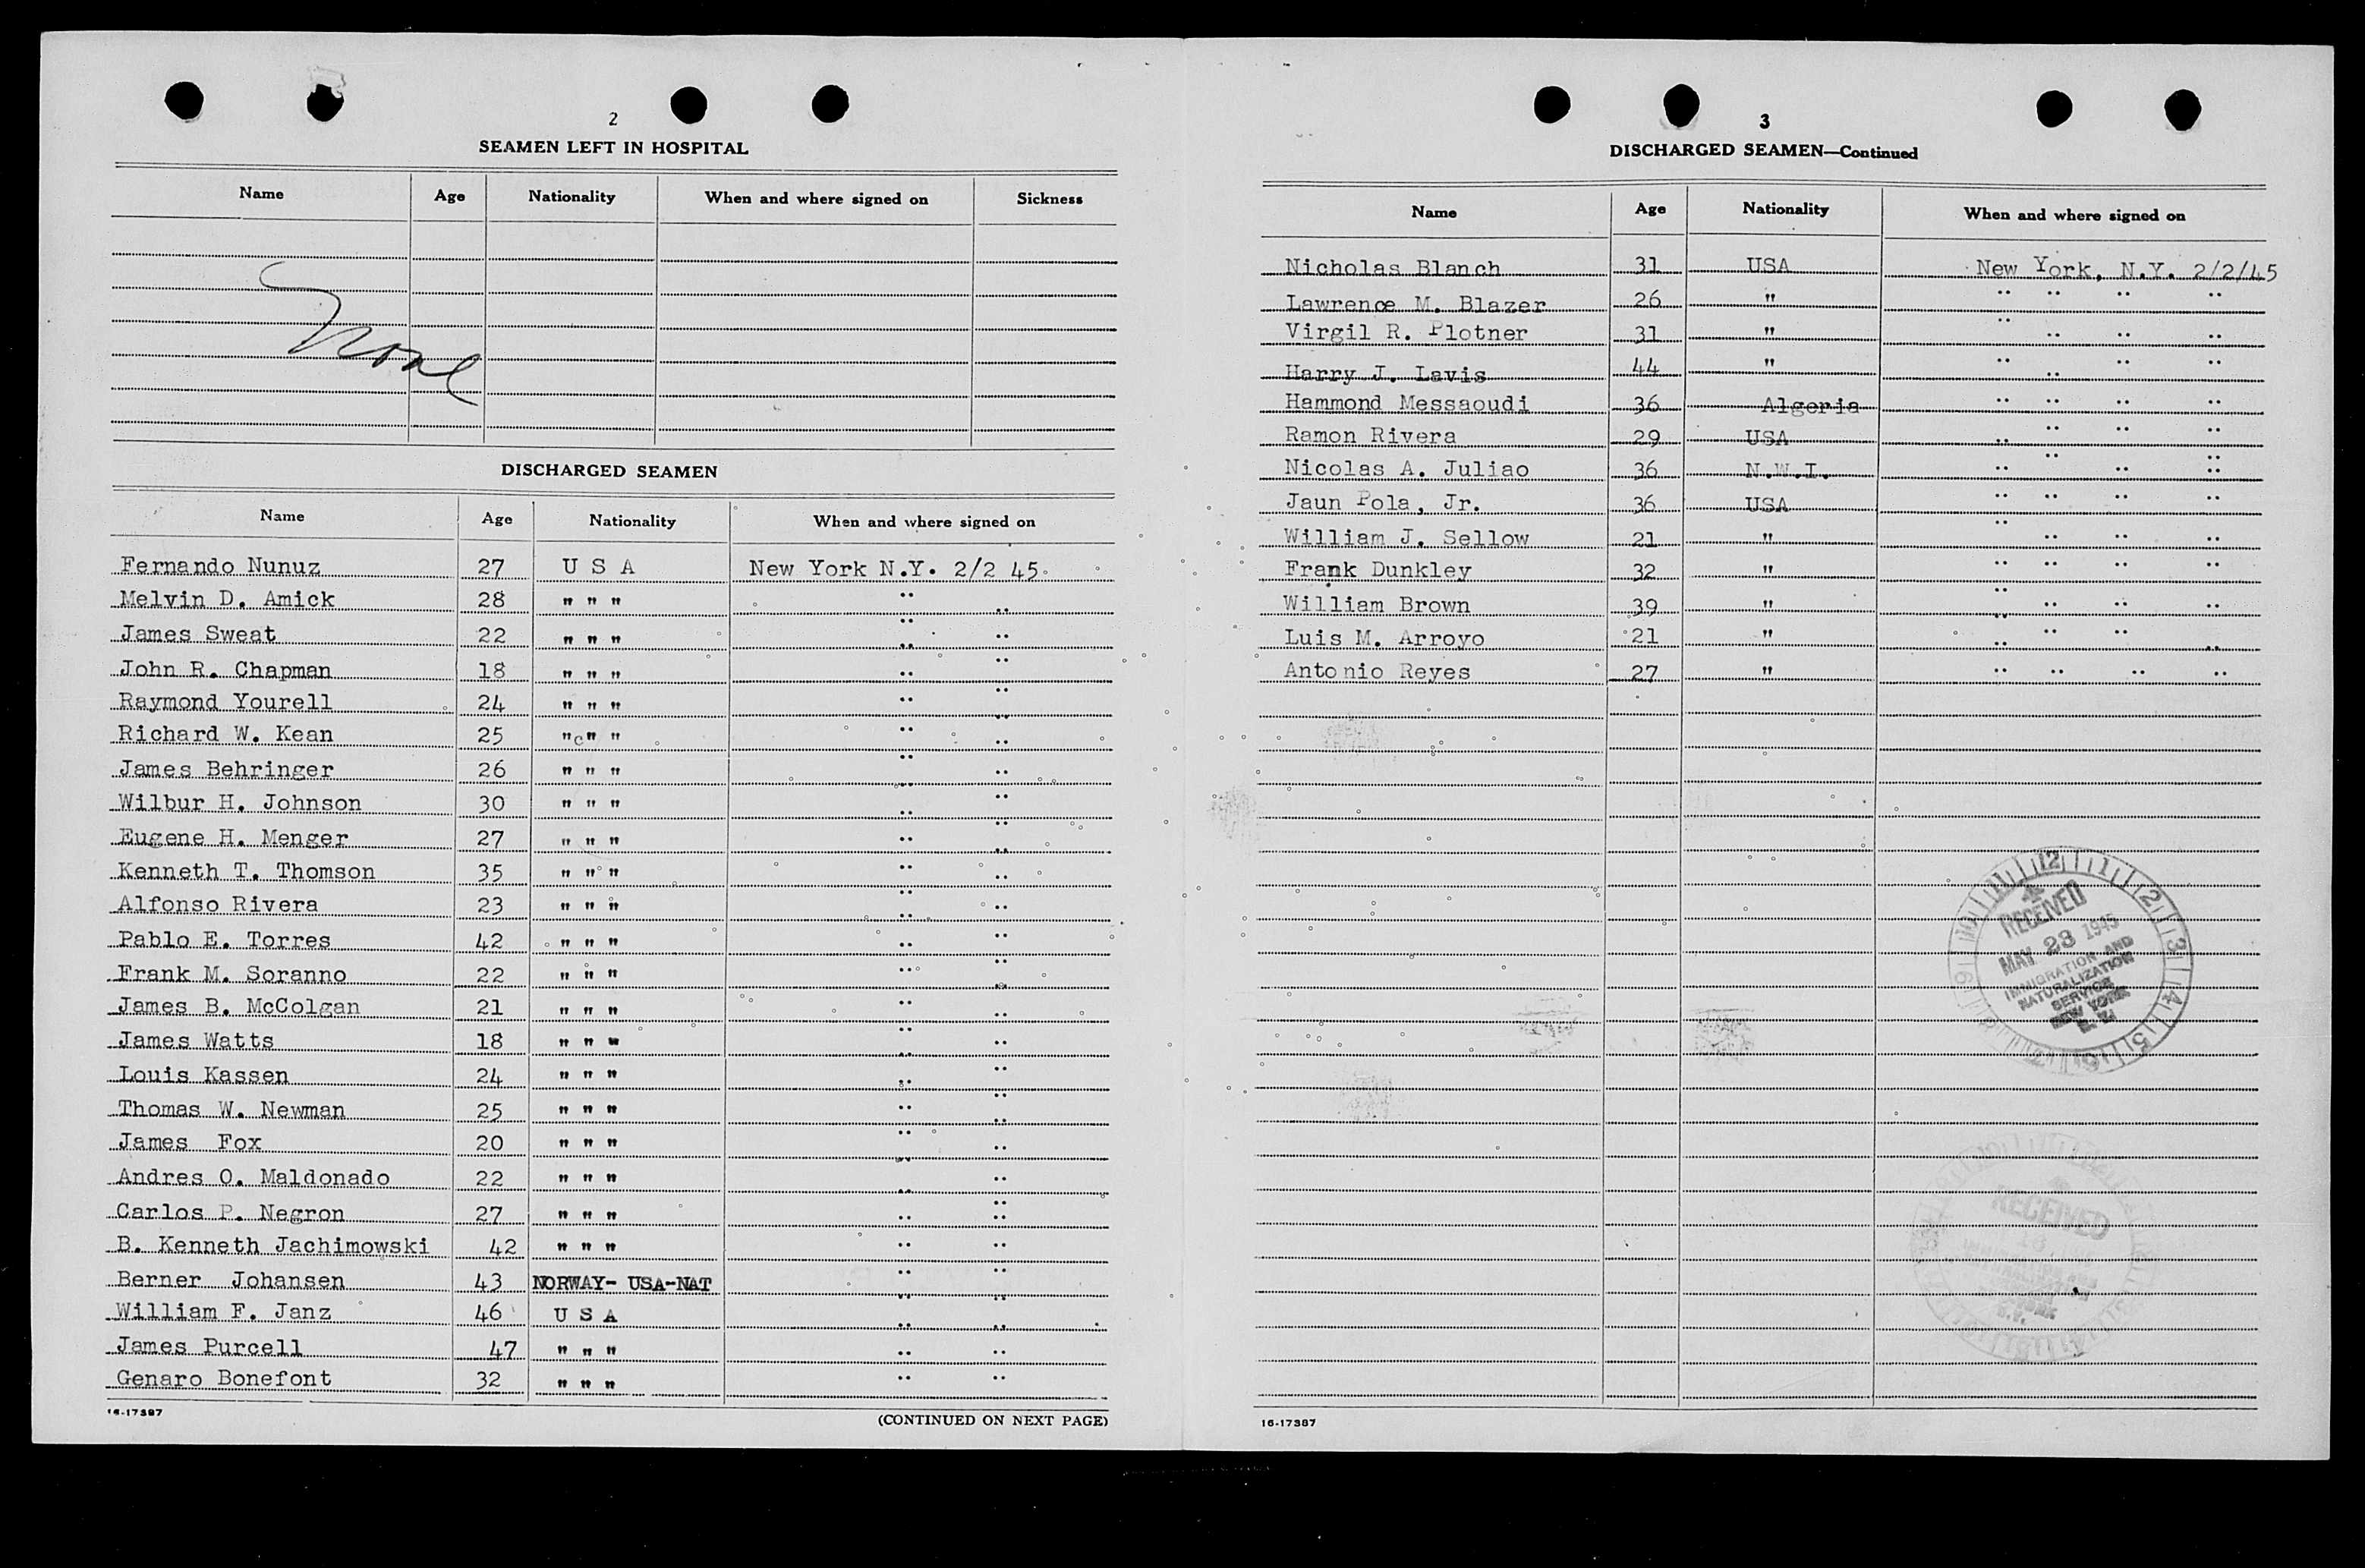 2
SEAMEN LEFT IN HOSPITAL
Name Age Nationality When and where signed on Sickness
None
DISCHARGED SEAMEN
Name Age Nationality When and where signed on
Fernando Nunuz 27 U S A New York N.Y. 2/2 45
Melvin D. Amick 28 " " " " "
James Sweat 22 " " " " "
John R. Chapman 18 " " " " "
Raymond Yourell 24 " " " " "
Richard W. Kean 25 " " " " "
James Behringer 26 " " " " "
Wilbur H. Johnson 30 " " " " "
Eugene H. Menger 27 " " " " "
Kenneth T. Thomson 35 " " " " "
Alfonso Rivera 23 " " " " "
Pablo E. Torres 42 " " " " "
Frank M. Soranno 22 " " " " "
James B. McColgan 21 " " " " "
James Watts 18 " " " " "
Louis Kassen 24 " " " " "
Thomas W. Newman 25 " " " " "
James Fox 20 " " " " "
Andres O. Maldonado 22 " " " " "
Carlos P. Negron 27 " " " " "
B. Kenneth Jachimowski 42 " " " " "
Berner Johansen 43 NORWAY- USA-NAT " "
William F. Janz 46 U S A " "
James Purcell 47 " " " " "
Genaro Bonefont 32 " " " " "
16-17387 (CONTINUED ON NEXT PAGE)
3
DISCHARGED SEAMEN—Continued
Name Age Nationality When and where signed on
Nicholas Blanch 31 USA New York, N.Y. 2/2/45
Lawrence M. Blazer 26 " " " " "
Virgil R. Plotner 31 " " " " "
Harry J. Lavis 44 " " " " "
Hammond Messaoudi 36 Algeria " " " "
Ramon Rivera 29 USA " " " "
Nicolas A. Juliao 36 N.W.I. " " " "
Jaun Pola, Jr. 36 USA " " " "
William J. Sellow 21 " " " " "
Frank Dunkley 32 " " " " "
William Brown 39 " " " " "
Luis M. Arroyo 21 " " " " "
Antonio Reyes 27 " " " " "
RECEIVED
MAY 23 1945
IMMIGRATION AND
NATURALIZATION
SERVICE
NEW YORK
N.Y.
RECEIVED
16-17387